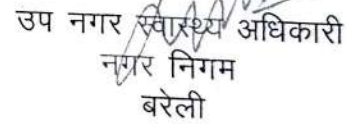 उप नगर स्वास्थ्य अधिकारी
नगर निगम
बरेली